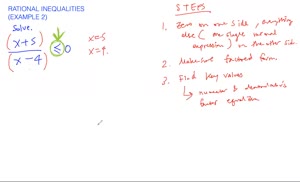 RATIONAL INEQUALITIES
(EXAMPLE 2)
Solve.
(x+5)/(x-4) ≤ 0
x=5
x=4.
STEPS
1. Zero on one side, everything
else (as one single rational
expression) on the other side.
2. Make sure factored form.
3. Find key values
↳ numerator & denominator's
factor equation